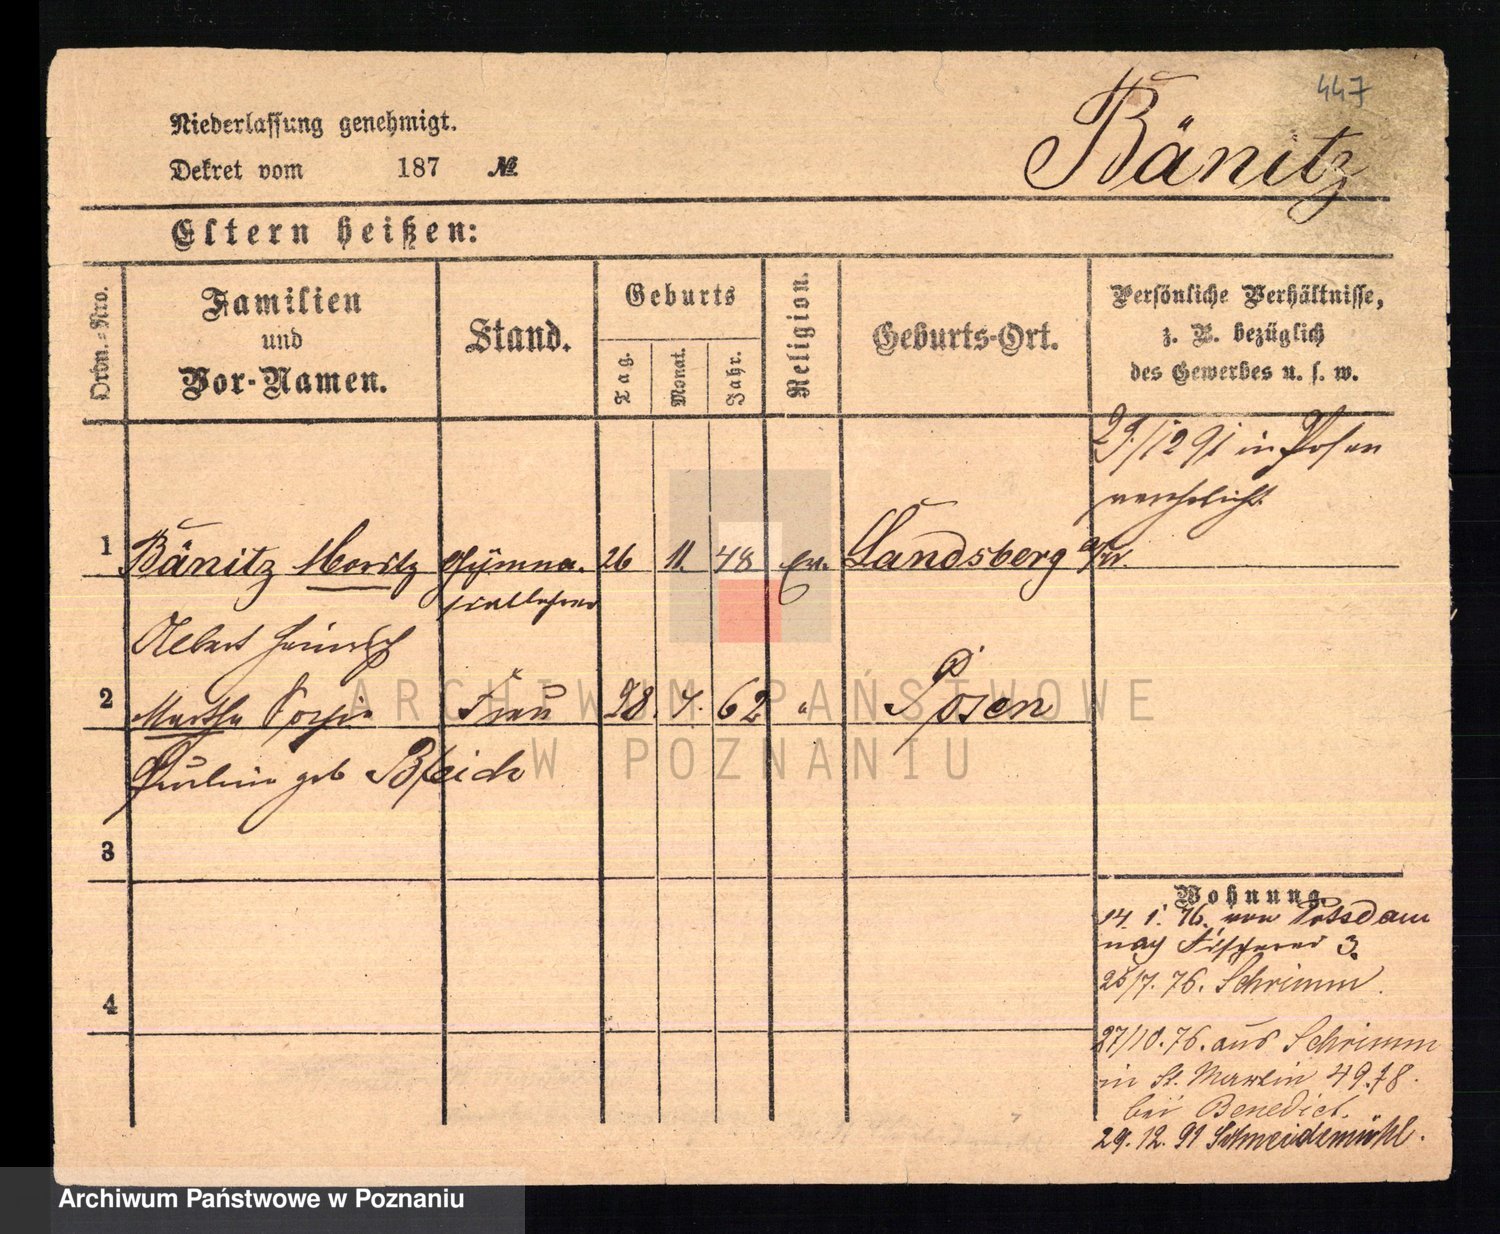 447
Niederlassung genehmigt.
Bänitz
Dekret vom 187 №
Eltern heißen:
Ordn.-Nro.
Familien und Vor-Namen.
Stand.
Geburts
Tag.
Monat.
Jahr.
Religion.
Geburts-Ort.
Persönliche Verhältnisse,
z. B. bezüglich
des Gewerbes u. s. w.
29/12 91 in Posen
verehelicht
1 Bänitz Moritz Gymna- 26 11. 48 ev. Landsberg a/W.
siallehrer
Albert Heinrich
2 Martha Sophie Frau 28. 4. 62 " Posen
Pauline geb Bleich
3
4
Wohnung.
14. 1. 76. von Potsdam
nach Fischerei 3.
28/7. 76. Schrimm.
27/10. 76. aus Schrimm
in St. Martin 49.78.
bei Benedict.
29. 12. 91 Schneidemühl.
ARCHIWUM PAŃSTWOWE
W POZNANIU
Archiwum Państwowe w Poznaniu